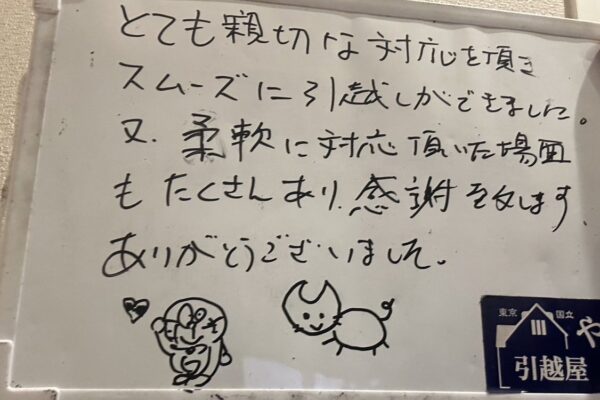 とても親切な対応を頂き
スムーズに引越しができました。
又、柔軟に対応頂いた場面
もたくさんあり、感謝致します
ありがとうございました。
東京 国立
や
引越屋